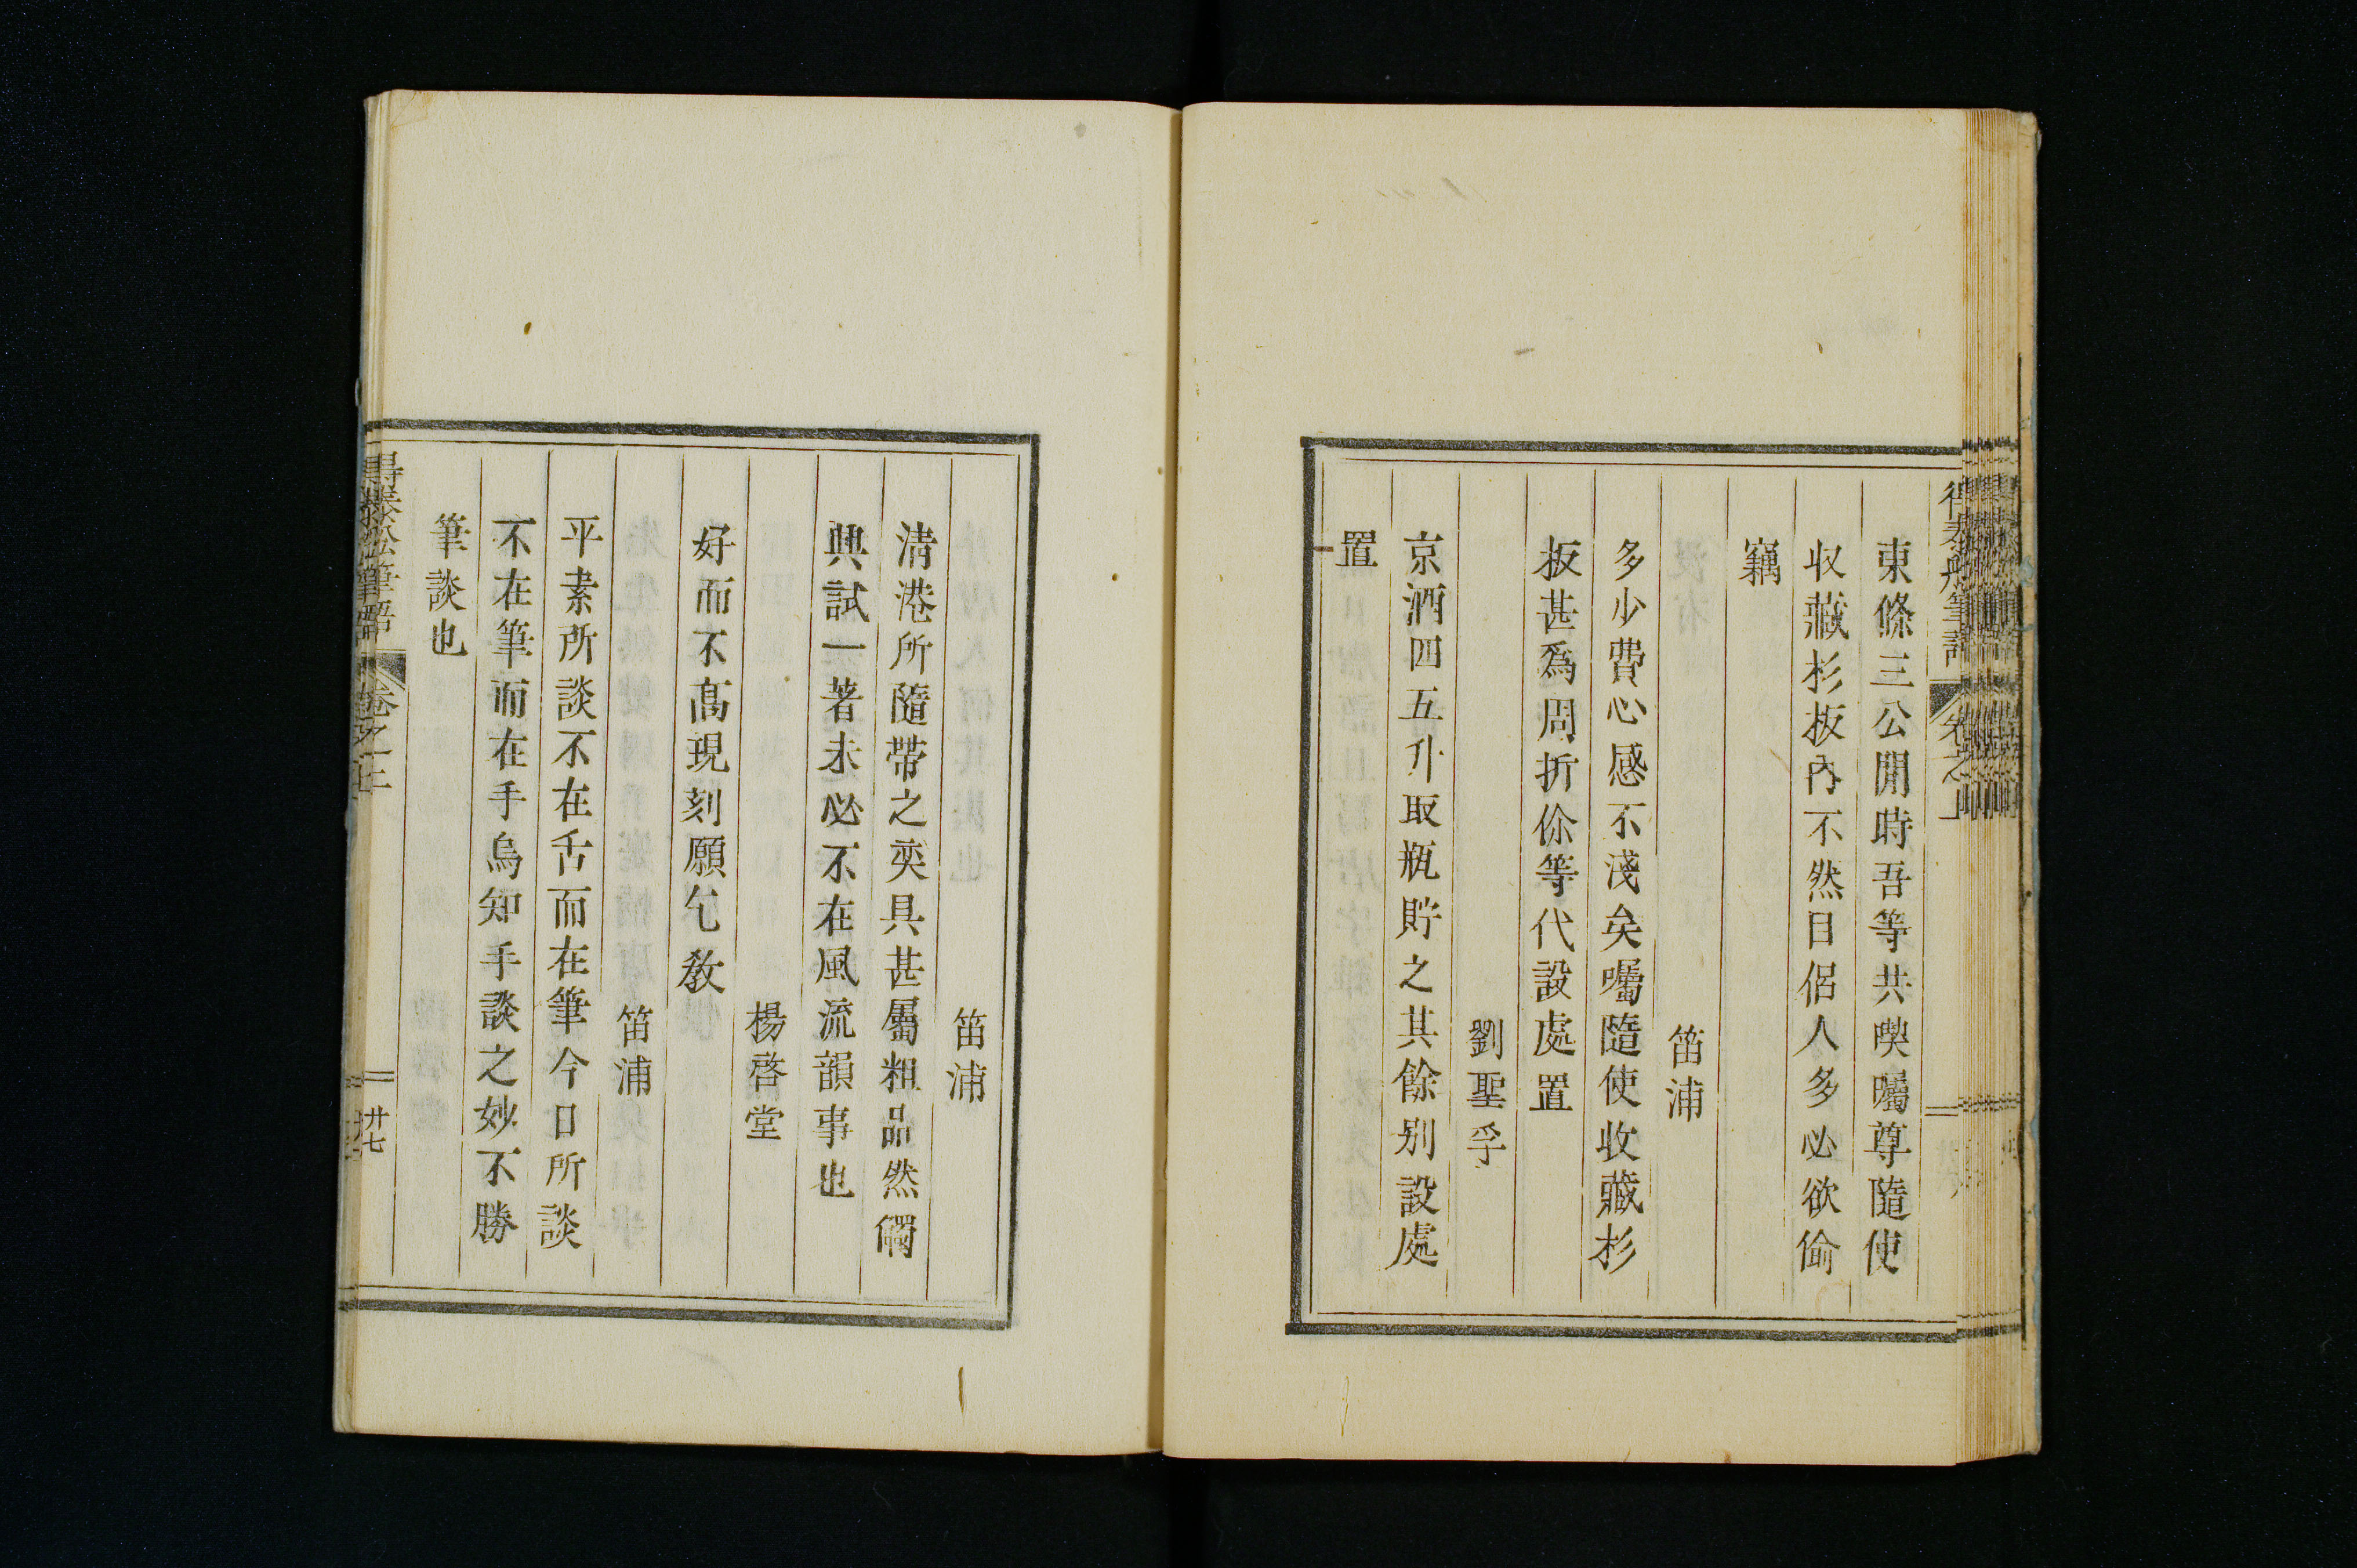 東條三公閒時吾等共喫囑尊隨使
収藏杉板內不然日侶人多必欲偷
竊
笛浦
多少費心感不淺矣囑隨使收藏杉
板甚爲周折你等代設處置
劉聖孚
京酒四五升取瓶貯之其餘別設處
置
笛浦
清港所隨帶之奕具甚屬粗品然僩
興試一著未必不在風流韻事也
楊啓堂
好而不高現刻願乞教
笛浦
平素所談不在舌而在筆今日所談
不在筆而在手烏知手談之妙不勝
筆談也
卷之上
廿七